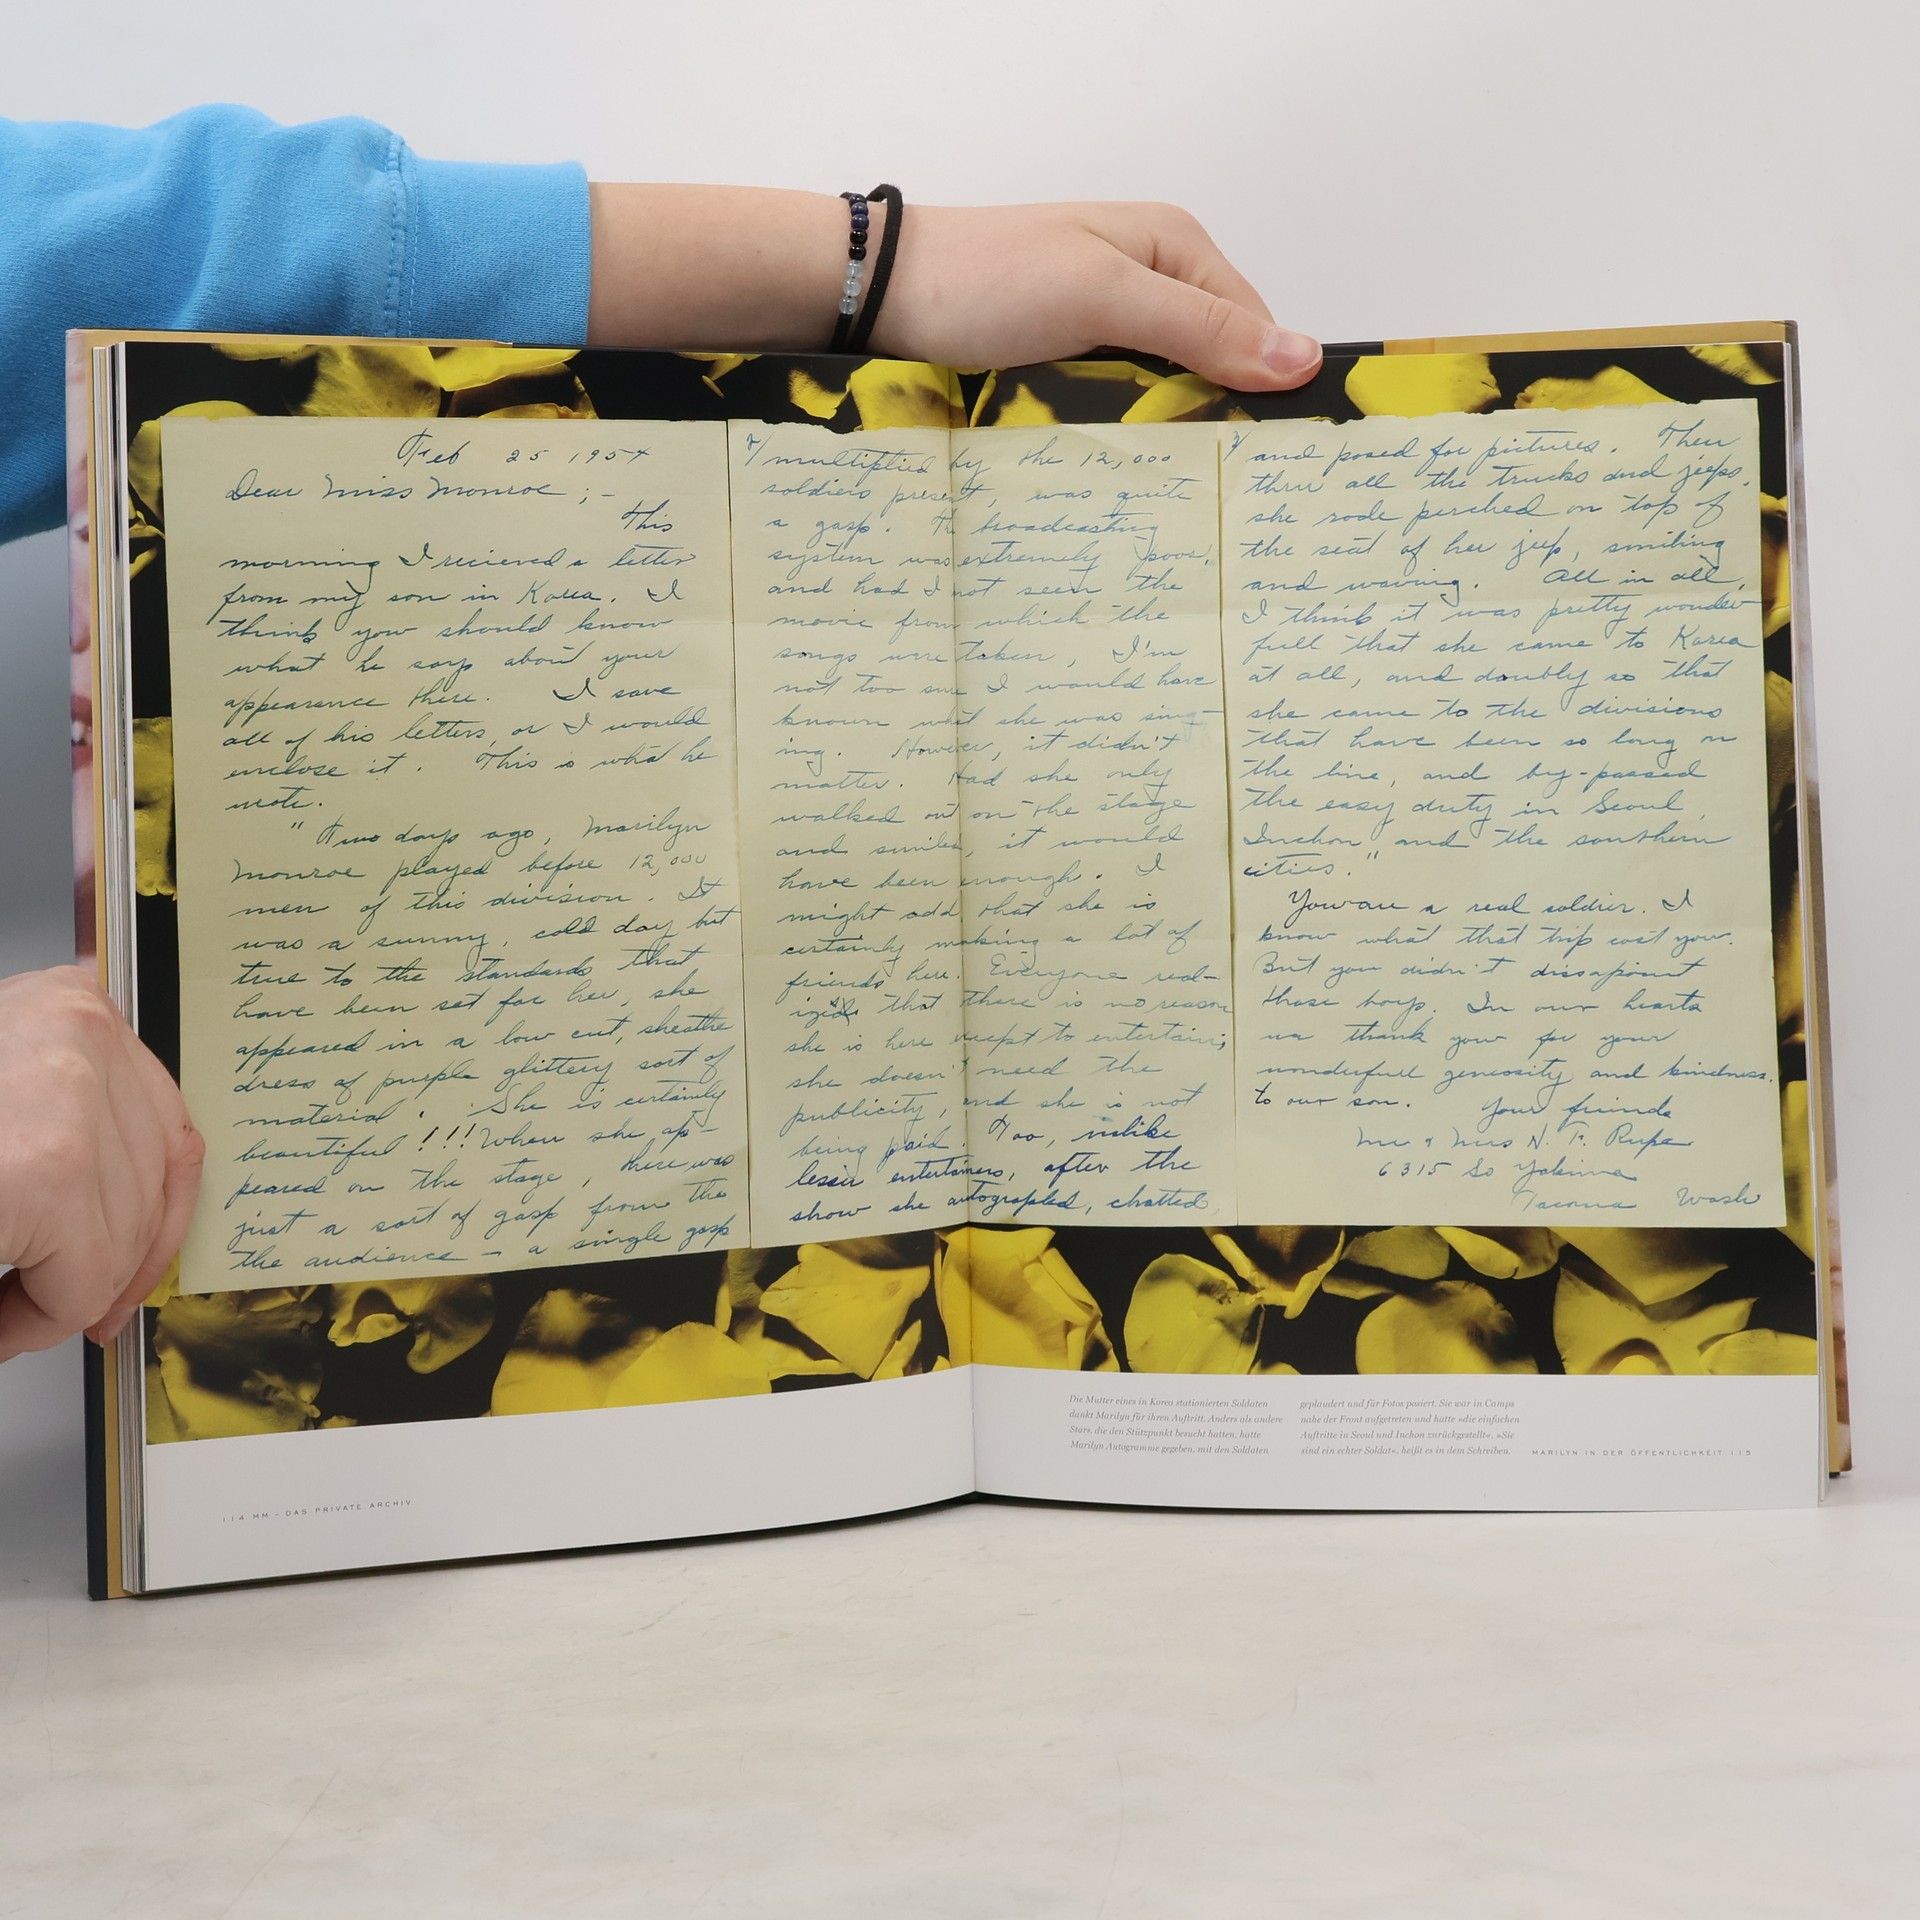 Feb 25 1954
Dear Miss Monroe ; -
This
morning I recieved a letter
from my son in Korea. I
think you should know
what he says about your
appearance there. I save
all of his letters, or I would
enclose it. This is what he
wrote.
" Two days ago, Marilyn
Monroe played before 12,000
men of this division. It
was a sunny, cold day but
true to the standards that
have been set for her, she
appeared in a low cut, sheathe
dress of purple glittery sort of
material. She is certainly
beautiful !!! When she ap-
peared on the stage, there was
just a sort of gasp from the
the audience - a single gasp
2/ multiplied by the 12,000
soldiers present, was quite
a gasp. The broadcasting
system was extremely poor,
and had I not seen the
movie from which the
songs were taken, I'm
not too sure I would have
known what she was sing-
ing. However, it didn't
matter. Had she only
walked out on the stage
and smiled, it would
have been enough. I
might add that she is
certainly making a lot of
friends here. Everyone real-
izes that there is no reason
she is here except to entertain;
she doesn't need the
publicity, and she is not
being paid. Too, unlike
lesser entertainers, after the
show she autographed, chatted,
3/ and posed for pictures. Then
thru all the trucks and jeeps,
she rode perched on top of
the seat of her jeep, smiling
and waving. All in all,
I think it was pretty wonder-
full that she came to Korea
at all, and doubly so that
she came to the divisions
that have been so long on
the line, and by-passed
the easy duty in Seoul,
Inchon and the southern
cities."
You are a real soldier. I
know what that trip cost you.
But you didn't dissapoint
those boys. In our hearts
we thank you for your
wonderfull generosity and kindness.
to our son.
Your friends
Mr & Mrs N. F. Rupe
6315 So Yakima
Tacoma Wash
Die Mutter eines in Korea stationierten Soldaten
dankt Marilyn für ihren Auftritt. Anders als andere
Stars, die den Stützpunkt besucht hatten, hatte
Marilyn Autogramme gegeben, mit den Soldaten
geplaudert und für Fotos posiert. Sie war in Camps
nahe der Front aufgetreten und hatte »die einfachen
Auftritte in Seoul und Inchon zurückgestellt«. »Sie
sind ein echter Soldat«, heißt es in dem Schreiben.
MARILYN IN DER ÖFFENTLICHKEIT 115
114 MM – DAS PRIVATE ARCHIV